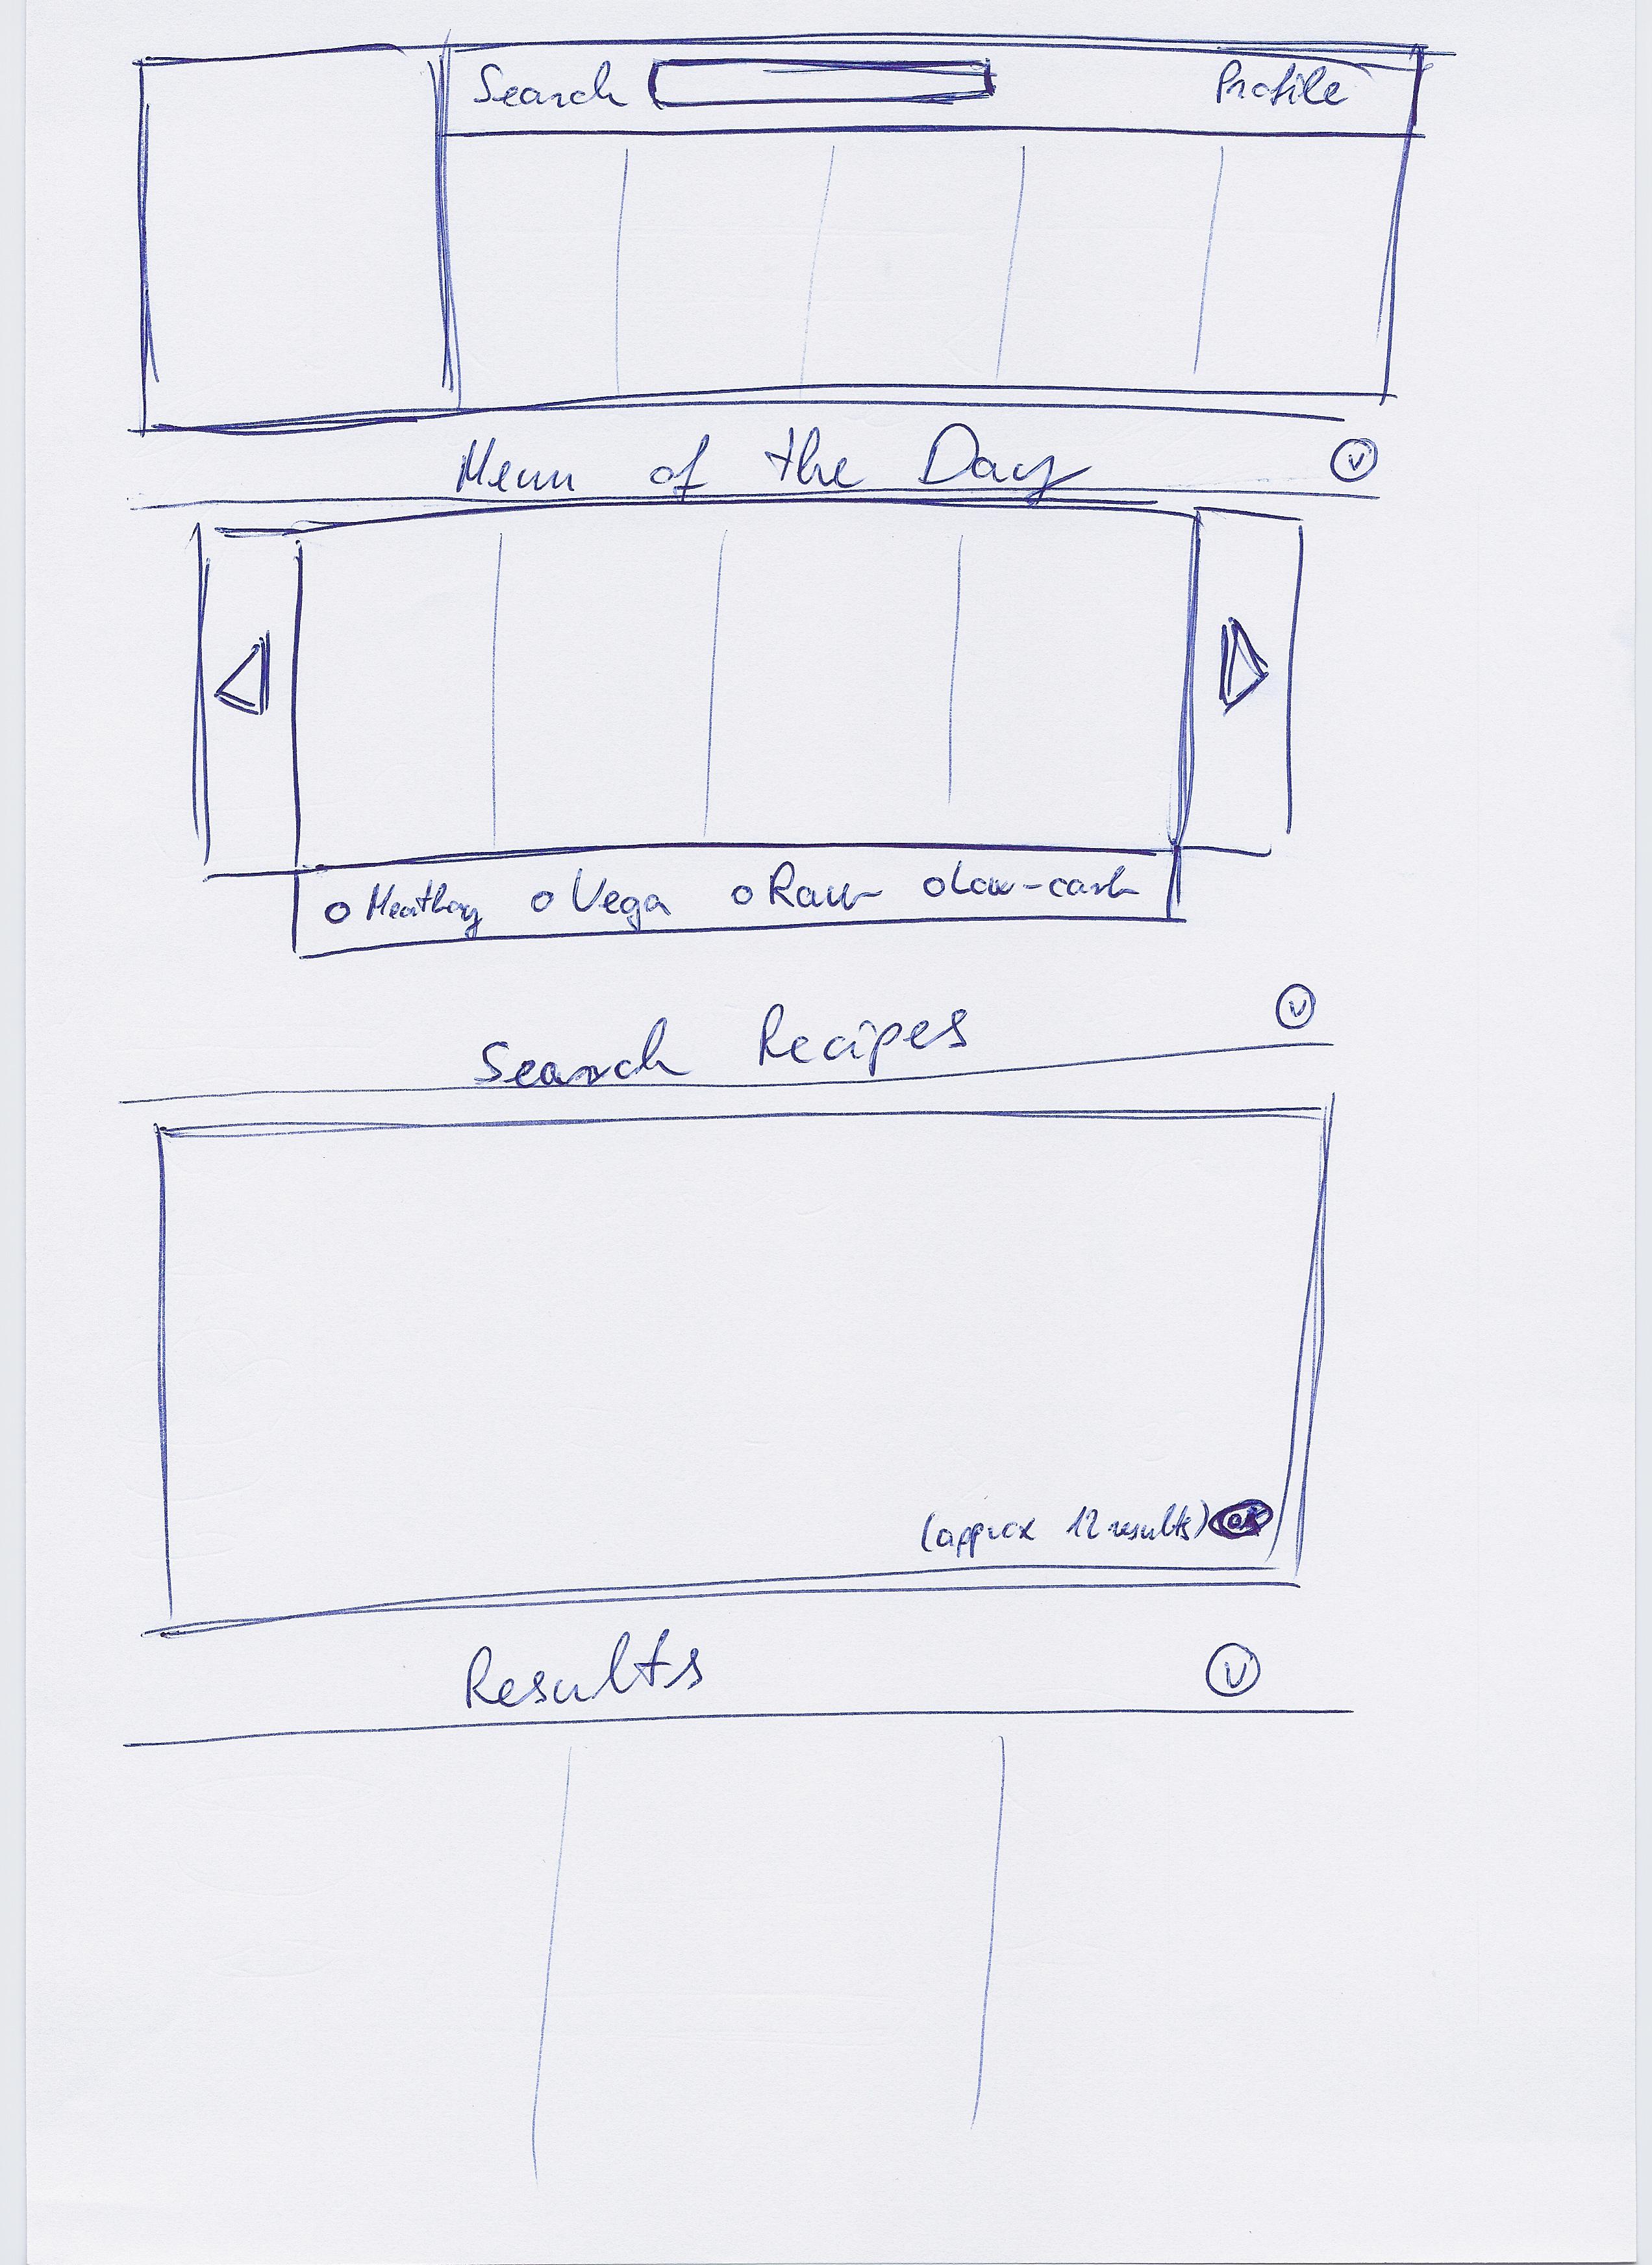 Search Profile
Menu of the Day
v
Vega Raw Low-carb
Search Recipes
v
(approx 12 results) OK
Results
v